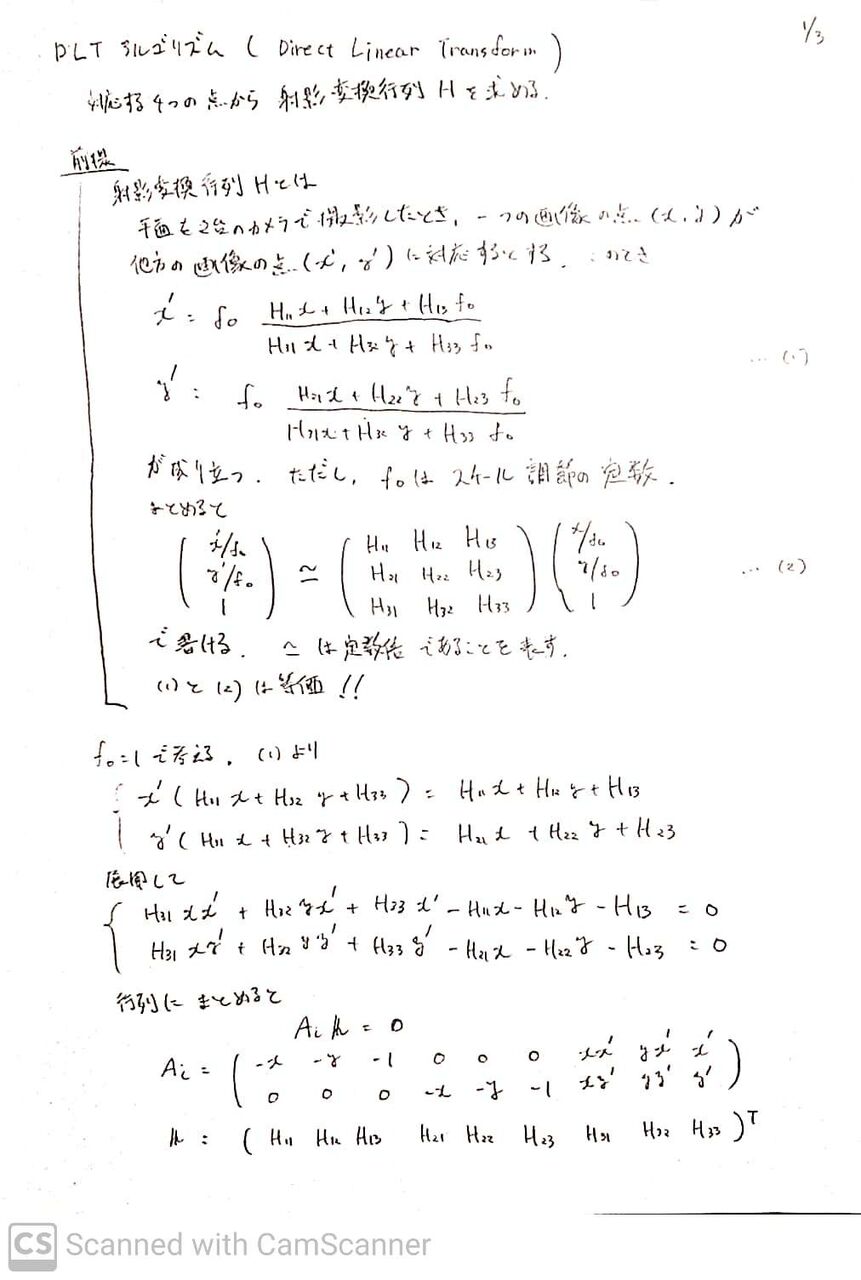 1/3
DLT アルゴリズム ( Direct Linear Transform )
対応する4つの点から 射影変換行列 H を求める.
前提
射影変換行列 H とは
平面を2台のカメラで撮影したとき, 一つの画像の点 (x, y) が
他方の画像の点 (x', y') に対応するとする. このとき
x' = f₀ (H₁₁x + H₁₂y + H₁₃f₀) / (H₃₁x + H₃₂y + H₃₃f₀)
… (1)
y' = f₀ (H₂₁x + H₂₂y + H₂₃f₀) / (H₃₁x + H₃₂y + H₃₃f₀)
が成り立つ. ただし, f₀は スケール調節の定数.
まとめると
( x'/f₀ ) ( H₁₁ H₁₂ H₁₃ ) ( x/f₀ )
( y'/f₀ ) ≃ ( H₂₁ H₂₂ H₂₃ ) ( y/f₀ ) … (2)
( 1 ) ( H₃₁ H₃₂ H₃₃ ) ( 1 )
で書ける. ≃ は定数倍であることを表す.
(1) と (2) は等価 !!
f₀=1 で考える. (1) より
x' ( H₃₁x + H₃₂y + H₃₃ ) = H₁₁x + H₁₂y + H₁₃
y' ( H₃₁x + H₃₂y + H₃₃ ) = H₂₁x + H₂₂y + H₂₃
展開して
H₃₁xx' + H₃₂yx' + H₃₃x' - H₁₁x - H₁₂y - H₁₃ = 0
H₃₁xy' + H₃₂yy' + H₃₃y' - H₂₁x - H₂₂y - H₂₃ = 0
行列にまとめると
Aᵢ h = 0
Aᵢ = ( -x -y -1 0 0 0 xx' yx' x' )
( 0 0 0 -x -y -1 xy' yy' y' )
h = ( H₁₁ H₁₂ H₁₃ H₂₁ H₂₂ H₂₃ H₃₁ H₃₂ H₃₃ )ᵀ
CS Scanned with CamScanner